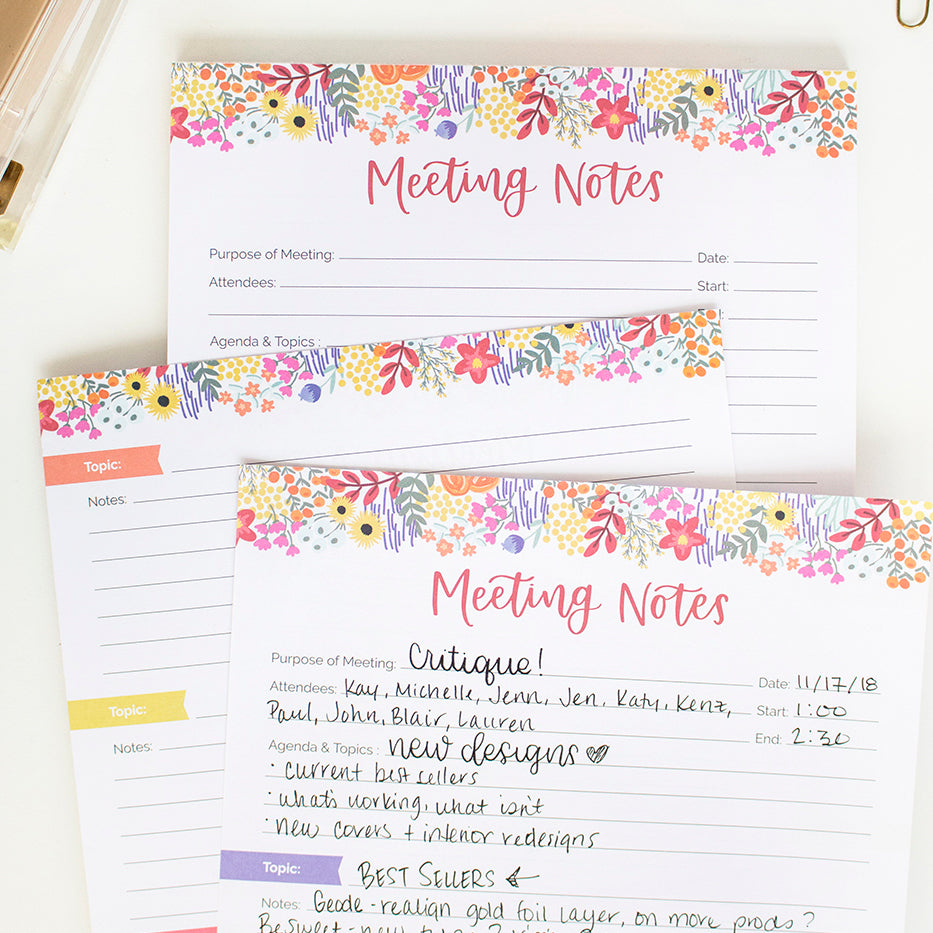 Meeting Notes
Purpose of Meeting: Date:
Attendees: Start:
Agenda & Topics :
Topic:
Notes:
Topic:
Notes:
Meeting Notes
Purpose of Meeting: Critique! Date: 11/17/18
Attendees: Kay, Michelle, Jenn, Jen, Katy, Kenz, Start: 1:00
Paul, John, Blair, Lauren End: 2:30
Agenda & Topics : new designs
· current best sellers
· what's working, what isn't
· new covers + interior redesigns
Topic: BEST SELLERS ←
Notes: Geode - realign gold foil layer, on more prods?
Be sweet - new